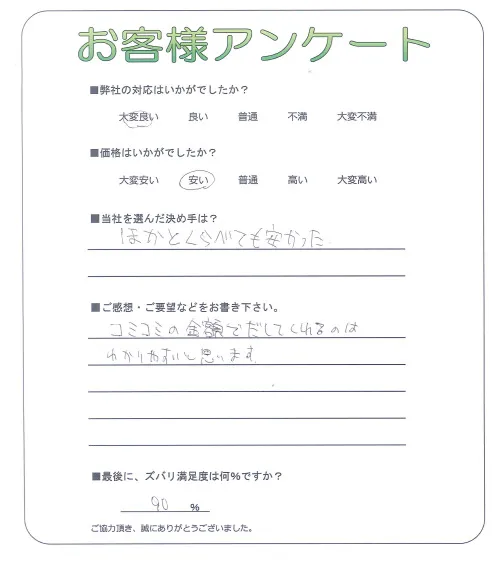 お客様アンケート
■弊社の対応はいかがでしたか?
大変良い 良い 普通 不満 大変不満
■価格はいかがでしたか?
大変安い 安い 普通 高い 大変高い
■当社を選んだ決め手は?
ほかとくらべても安かった
■ご感想・ご要望などをお書き下さい。
コミコミの金額でだしてくれるのは
わかりやすいと思います
■最後に、ズバリ満足度は何%ですか?
90 %
ご協力頂き、誠にありがとうございました。